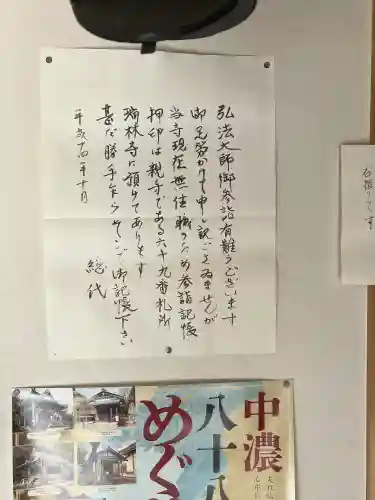 弘法大師御参詣有難うございます
御足労かけて申し訳ございませんが
当寺現在無住職のため参詣記帳
押印は親寺である六十九番札所
瑞林寺に預けてあります
甚だ勝手乍ら御記帳下さい
平成十四年十月
総代
右押しです
中濃
八十八
めぐ